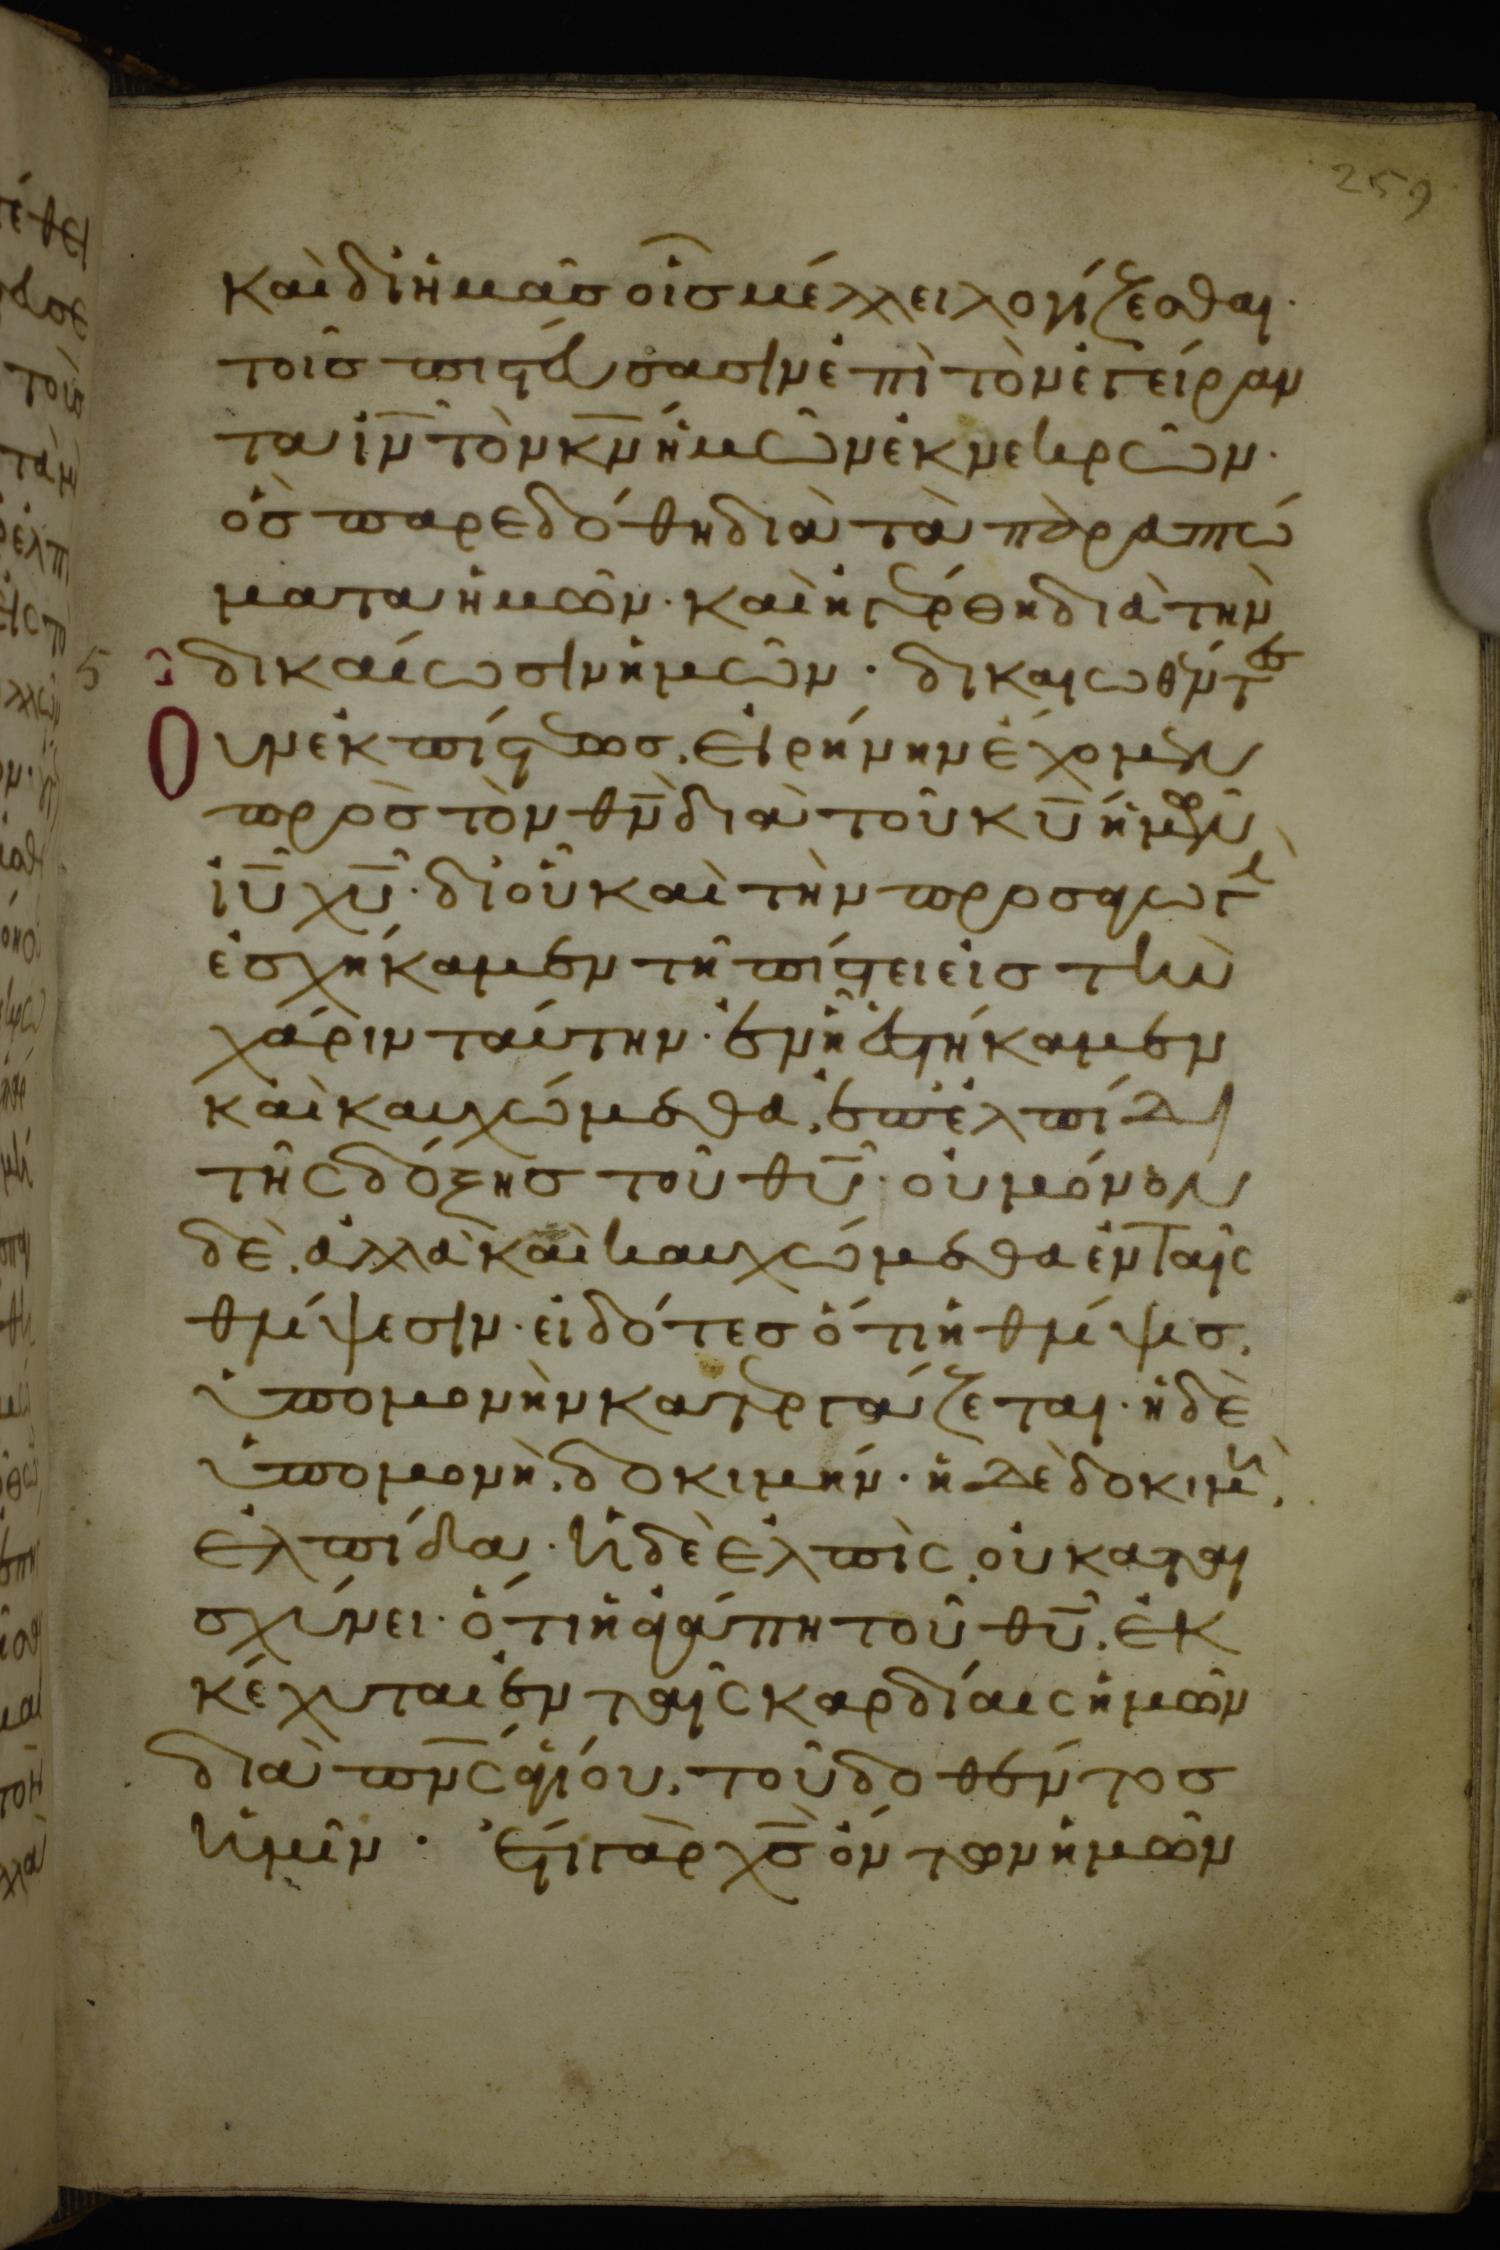 259
καὶ δι ἡμᾶσ οἷσ μέλλει λογίζεσθαι·
τοῖσ πιστεύσασιν ἐπὶ τὸν ἐγείραν
τα ιν̅ τὸν κν̅ ἡμῶν ἐκ νεκρῶν·
ὃσ παρεδόθη διὰ τὰ παραπτώ
ματα ἡμῶν· καὶ ἠγέρθη διὰ τὴν
5 δικαίωσιν ἡμῶν· δικαιωθέντες
Οὖν ἐκ πίστεωσ, εἰρήνην ἔχομεν
πρὸσ τὸν θν̅ διὰ τοῦ κυ̅ ἡμῶν
ιυ̅ χυ̅· δι οὗ καὶ τὴν προσαγωγ
ἐσχήκαμεν τῆ πίστει εἰσ τὴν
χάριν ταύτην· ἐν ἧ ἑστήκαμεν
καὶ καυχώμεθα, ἐπ ἐλπίδι
τῆς δόξησ τοῦ θυ̅· οὐ μόνον
δὲ, ἀλλὰ καὶ καυχώμεθα ἐν ταῖς
θλίψεσιν· εἰδότεσ ὅτι ἡ θλίψισ,
ὑπομονὴν κατεργάζεται· ἡ δὲ
ὑπομονὴ, δοκιμήν· ἡ δὲ δοκιμὴ,
ἐλπίδα· ἡ δὲ ἐλπὶς, οὐ καται
σχύνει· ὅτι ἡ ἀγάπη τοῦ θυ̅, ἐκ
κέχυται ἐν ταῖς καρδίαις ἡμῶν
διὰ πν̅ς ἁγίου, τοῦ δοθέντοσ
ἡμῖν· ἔτι γὰρ χσ̅ ὄντων ἡμῶν